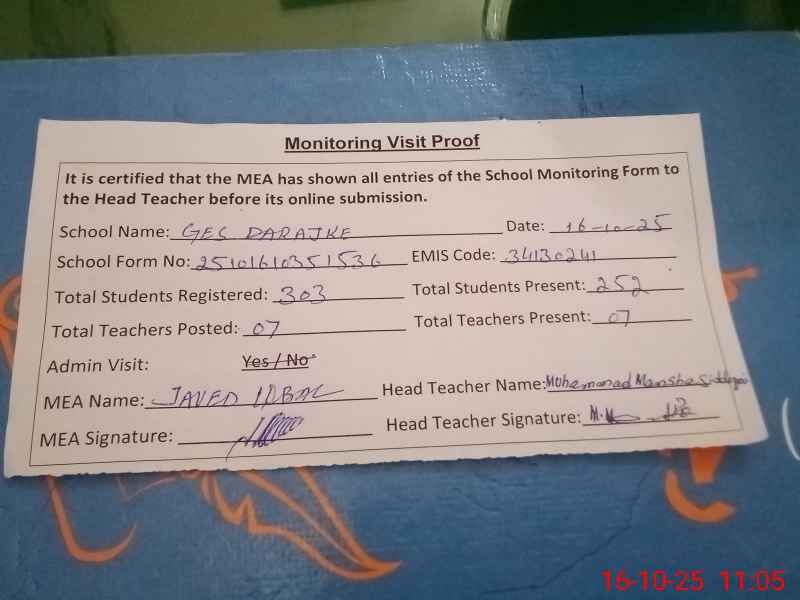 Monitoring Visit Proof
It is certified that the MEA has shown all entries of the School Monitoring Form to
the Head Teacher before its online submission.
School Name: GES DARAJKE Date: 16-10-25
School Form No: 25101610351536 EMIS Code: 34130241
Total Students Registered: 303 Total Students Present: 252
Total Teachers Posted: 07 Total Teachers Present: 07
Admin Visit: Yes / No
MEA Name: JAVED IQBAL Head Teacher Name: Mohammad Mansha Siddiqui
MEA Signature: Head Teacher Signature:
16-10-25 11:05